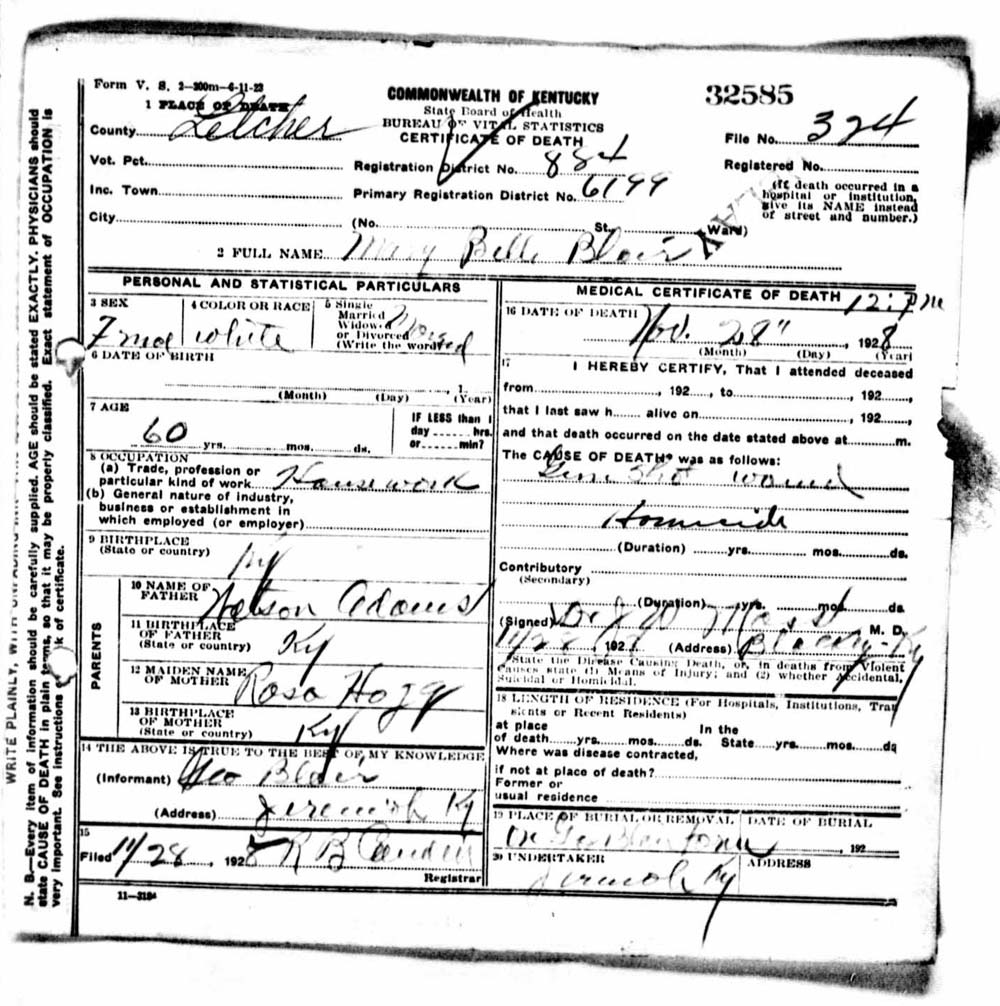 Form V. S. 2—300m—6-11-23
32585
COMMONWEALTH OF KENTUCKY
State Board of Health
BUREAU OF VITAL STATISTICS
CERTIFICATE OF DEATH
1 PLACE OF DEATH
County Letcher
Vot. Pct.
Inc. Town
City
Registration District No. 884
Primary Registration District No. 6199
(No. St., Ward)
File No. 324
Registered No.
(If death occurred in a
hospital or institution,
give its NAME instead
of street and number.)
2 FULL NAME Mary Belle Blair
PERSONAL AND STATISTICAL PARTICULARS
3 SEX
4 COLOR OR RACE white
5 Single
Married
Widowed
or Divorced
(Write the word)
6 DATE OF BIRTH
, 1
(Month) (Day) (Year)
7 AGE
60 yrs. mos. ds.
IF LESS than 1
day hrs.
or min?
8 OCCUPATION
(a) Trade, profession or
particular kind of work Housework
(b) General nature of industry,
business or establishment in
which employed (or employer)
9 BIRTHPLACE
(State or country) Ky
PARENTS
10 NAME OF
FATHER Watson Adams
11 BIRTHPLACE
OF FATHER
(State or country) Ky
12 MAIDEN NAME
OF MOTHER Rosa Hogg
13 BIRTHPLACE
OF MOTHER
(State or country) Ky
14 THE ABOVE IS TRUE TO THE BEST OF MY KNOWLEDGE
(Informant) Geo Blair
(Address) Jeremiah Ky
15
Filed 11/28, 1928 R B
Registrar
11—3184
MEDICAL CERTIFICATE OF DEATH
16 DATE OF DEATH
Nov. 28", 1928
(Month) (Day) (Year)
17
I HEREBY CERTIFY, That I attended deceased
from , 192 , to , 192
that I last saw h alive on , 192
and that death occurred on the date stated above at m.
The CAUSE OF DEATH* was as follows:
Gun Shot wound
Homicide
(Duration) yrs. mos. ds.
Contributory
(Secondary)
(Duration) yrs. mos. ds.
(Signed) M. D.
11/28 192 (Address) Blackey-Ky
*State the Disease Causing Death, or, in deaths from Violent
Causes state (1) Means of Injury; and (2) whether Accidental,
Suicidal or Homicidal.
18 LENGTH OF RESIDENCE (For Hospitals, Institutions, Tran
sients or Recent Residents)
at place In the
of death yrs. mos. ds. State yrs. mos. ds
Where was disease contracted,
if not at place of death?
Former or
usual residence
19 PLACE OF BURIAL OR REMOVAL
DATE OF BURIAL
, 192
20 UNDERTAKER
ADDRESS
Jeremiah Ky
N. B.—Every item of information should be carefully supplied. AGE should be stated EXACTLY. PHYSICIANS should
state CAUSE OF DEATH in plain terms, so that it may be properly classified. Exact statement of OCCUPATION is
very important. See instructions of certificate.
WRITE PLAINLY, WITH UNFADING INK